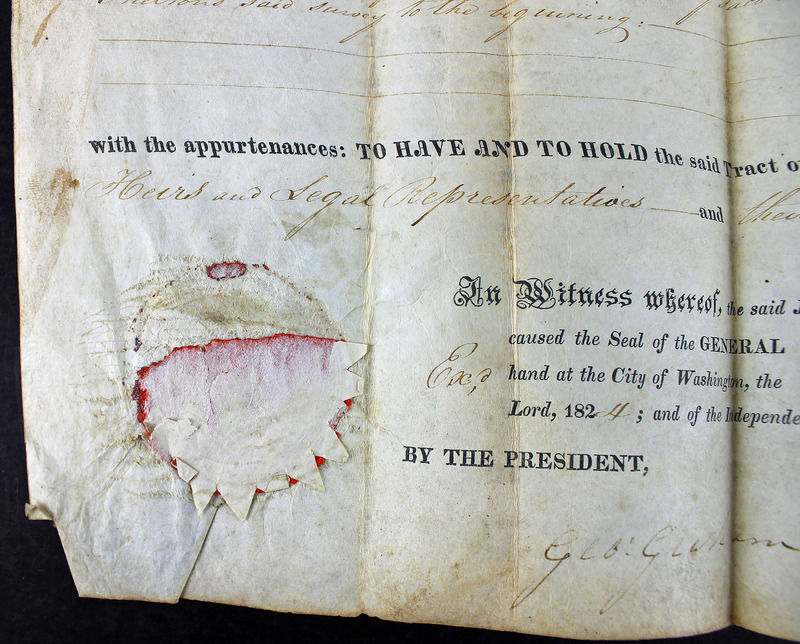 said survey to the beginning:
with the appurtenances: TO HAVE AND TO HOLD the said Tract
Heirs and Legal Representatives and
In Witness whereof, the said J
caused the Seal of the GENERAL
Ex,d hand at the City of Washington, the
Lord, 1824; and of the Independe
BY THE PRESIDENT,
Geo: Graham